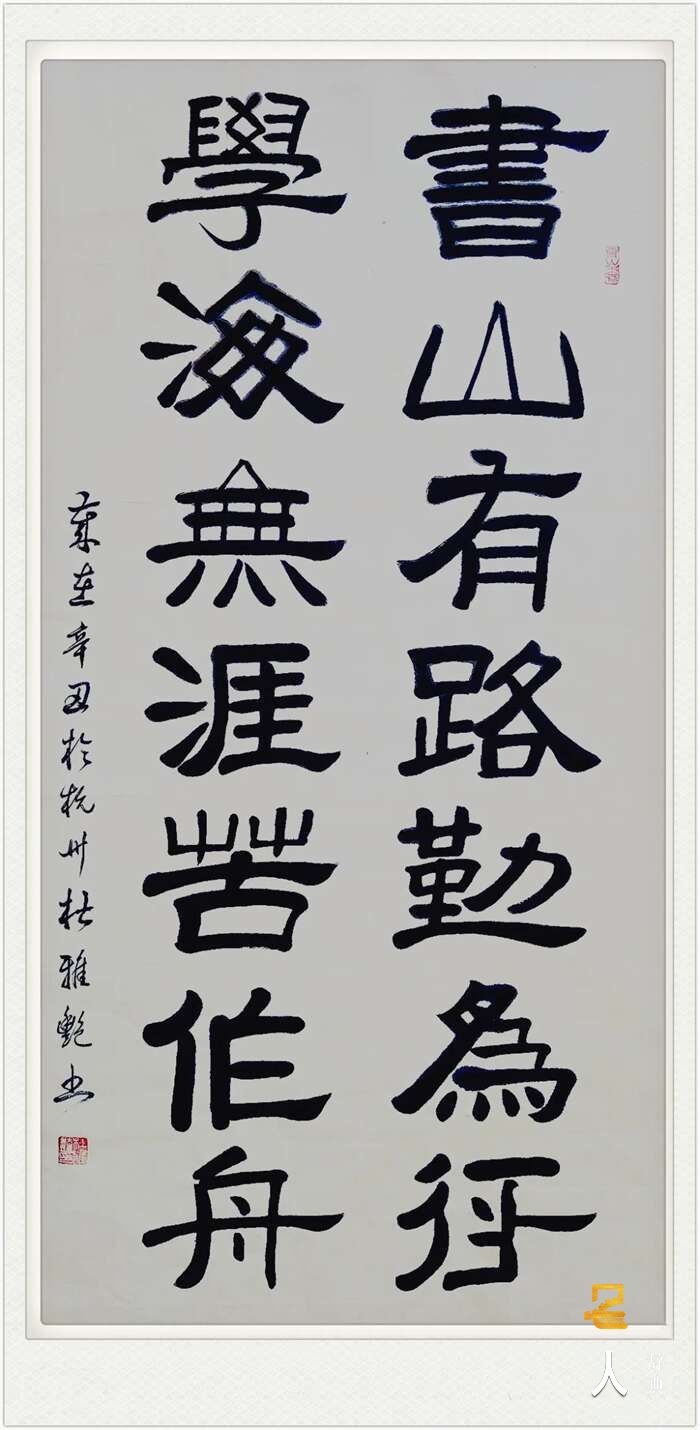 書山有路勤為徑
學海無涯苦作舟
歲在辛丑於杭州杜雅艷书
名人